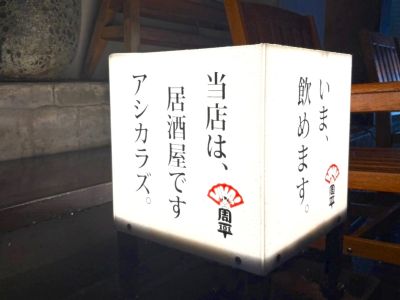 当店は、
居酒屋です
アシカラズ。
周平
いま、
飲めます。
周平